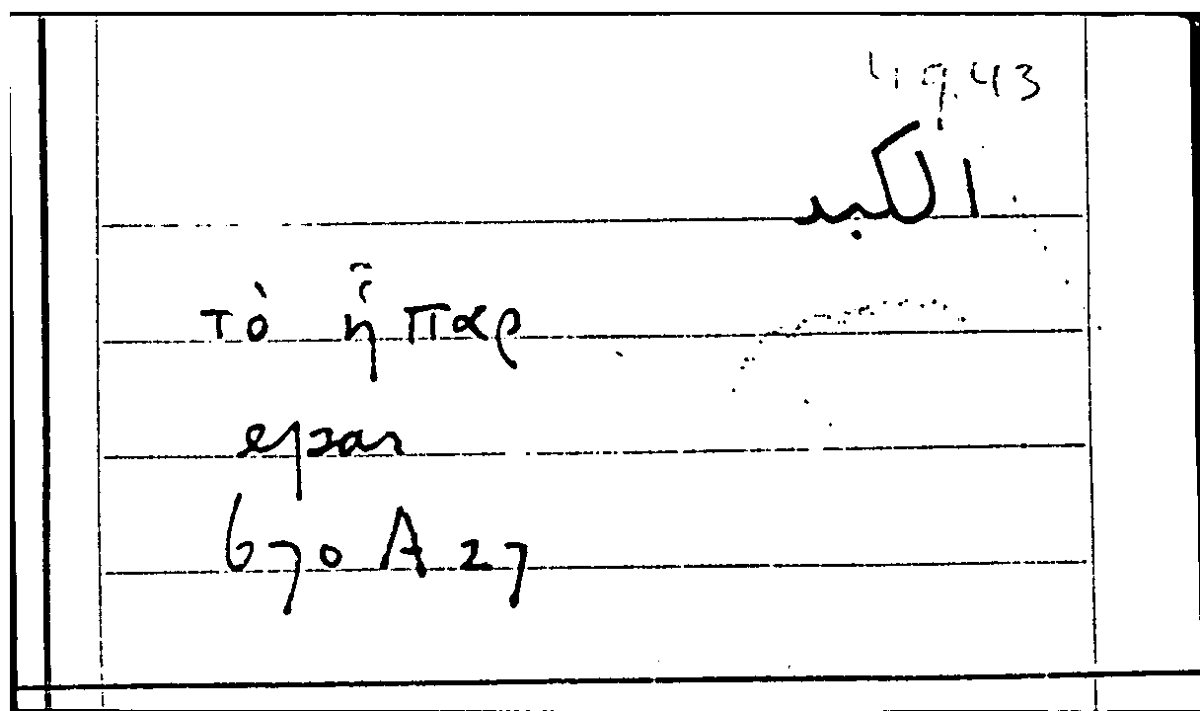 الكبد
τὸ ἧπαρ
epar
670 A 27